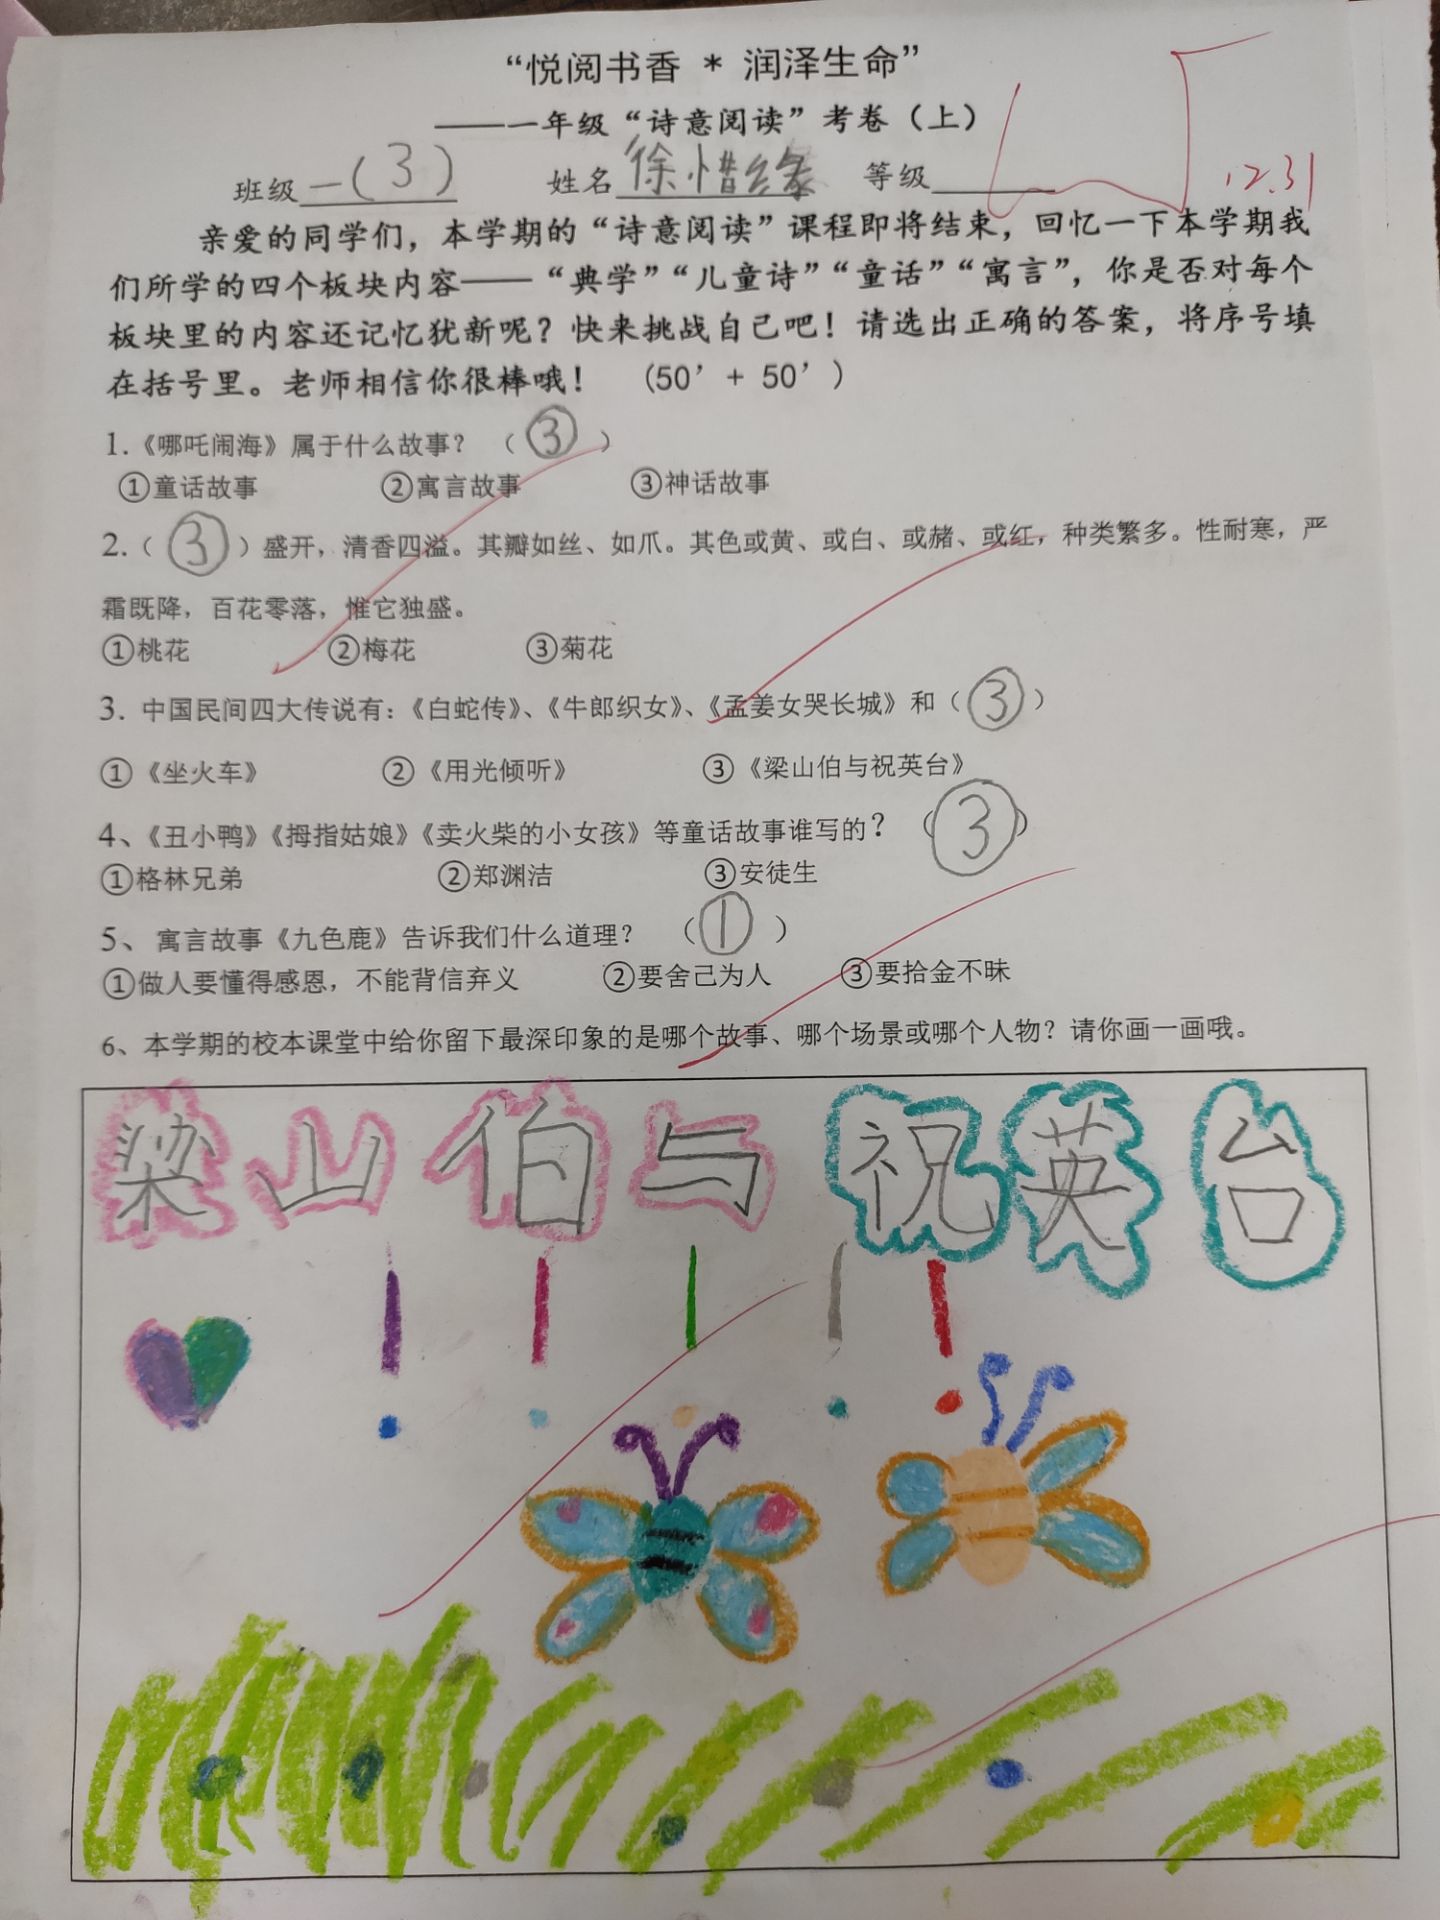 “悦阅书香 * 润泽生命”
——一年级“诗意阅读”考卷（上）
班级 一（3） 姓名 徐惜缘 等级 12.31
亲爱的同学们，本学期的“诗意阅读”课程即将结束，回忆一下本学期我
们所学的四个板块内容——“典学”“儿童诗”“童话”“寓言”，你是否对每个
板块里的内容还记忆犹新呢？快来挑战自己吧！请选出正确的答案，将序号填
在括号里。老师相信你很棒哦！ （50’+ 50’）
1.《哪吒闹海》属于什么故事？ （ ③ ）
①童话故事 ②寓言故事 ③神话故事
2.（ ③ ）盛开，清香四溢。其瓣如丝、如爪。其色或黄、或白、或赭、或红，种类繁多。性耐寒，严
霜既降，百花零落，惟它独盛。
①桃花 ②梅花 ③菊花
3. 中国民间四大传说有：《白蛇传》、《牛郎织女》、《孟姜女哭长城》和（ ③ ）
①《坐火车》 ②《用光倾听》 ③《梁山伯与祝英台》
4、《丑小鸭》《拇指姑娘》《卖火柴的小女孩》等童话故事谁写的？ （ ③ ）
①格林兄弟 ②郑渊洁 ③安徒生
5、 寓言故事《九色鹿》告诉我们什么道理？ （ ① ）
①做人要懂得感恩，不能背信弃义 ②要舍己为人 ③要拾金不昧
6、本学期的校本课堂中给你留下最深印象的是哪个故事、哪个场景或哪个人物？请你画一画哦。
梁山伯与祝英台
！！！！！